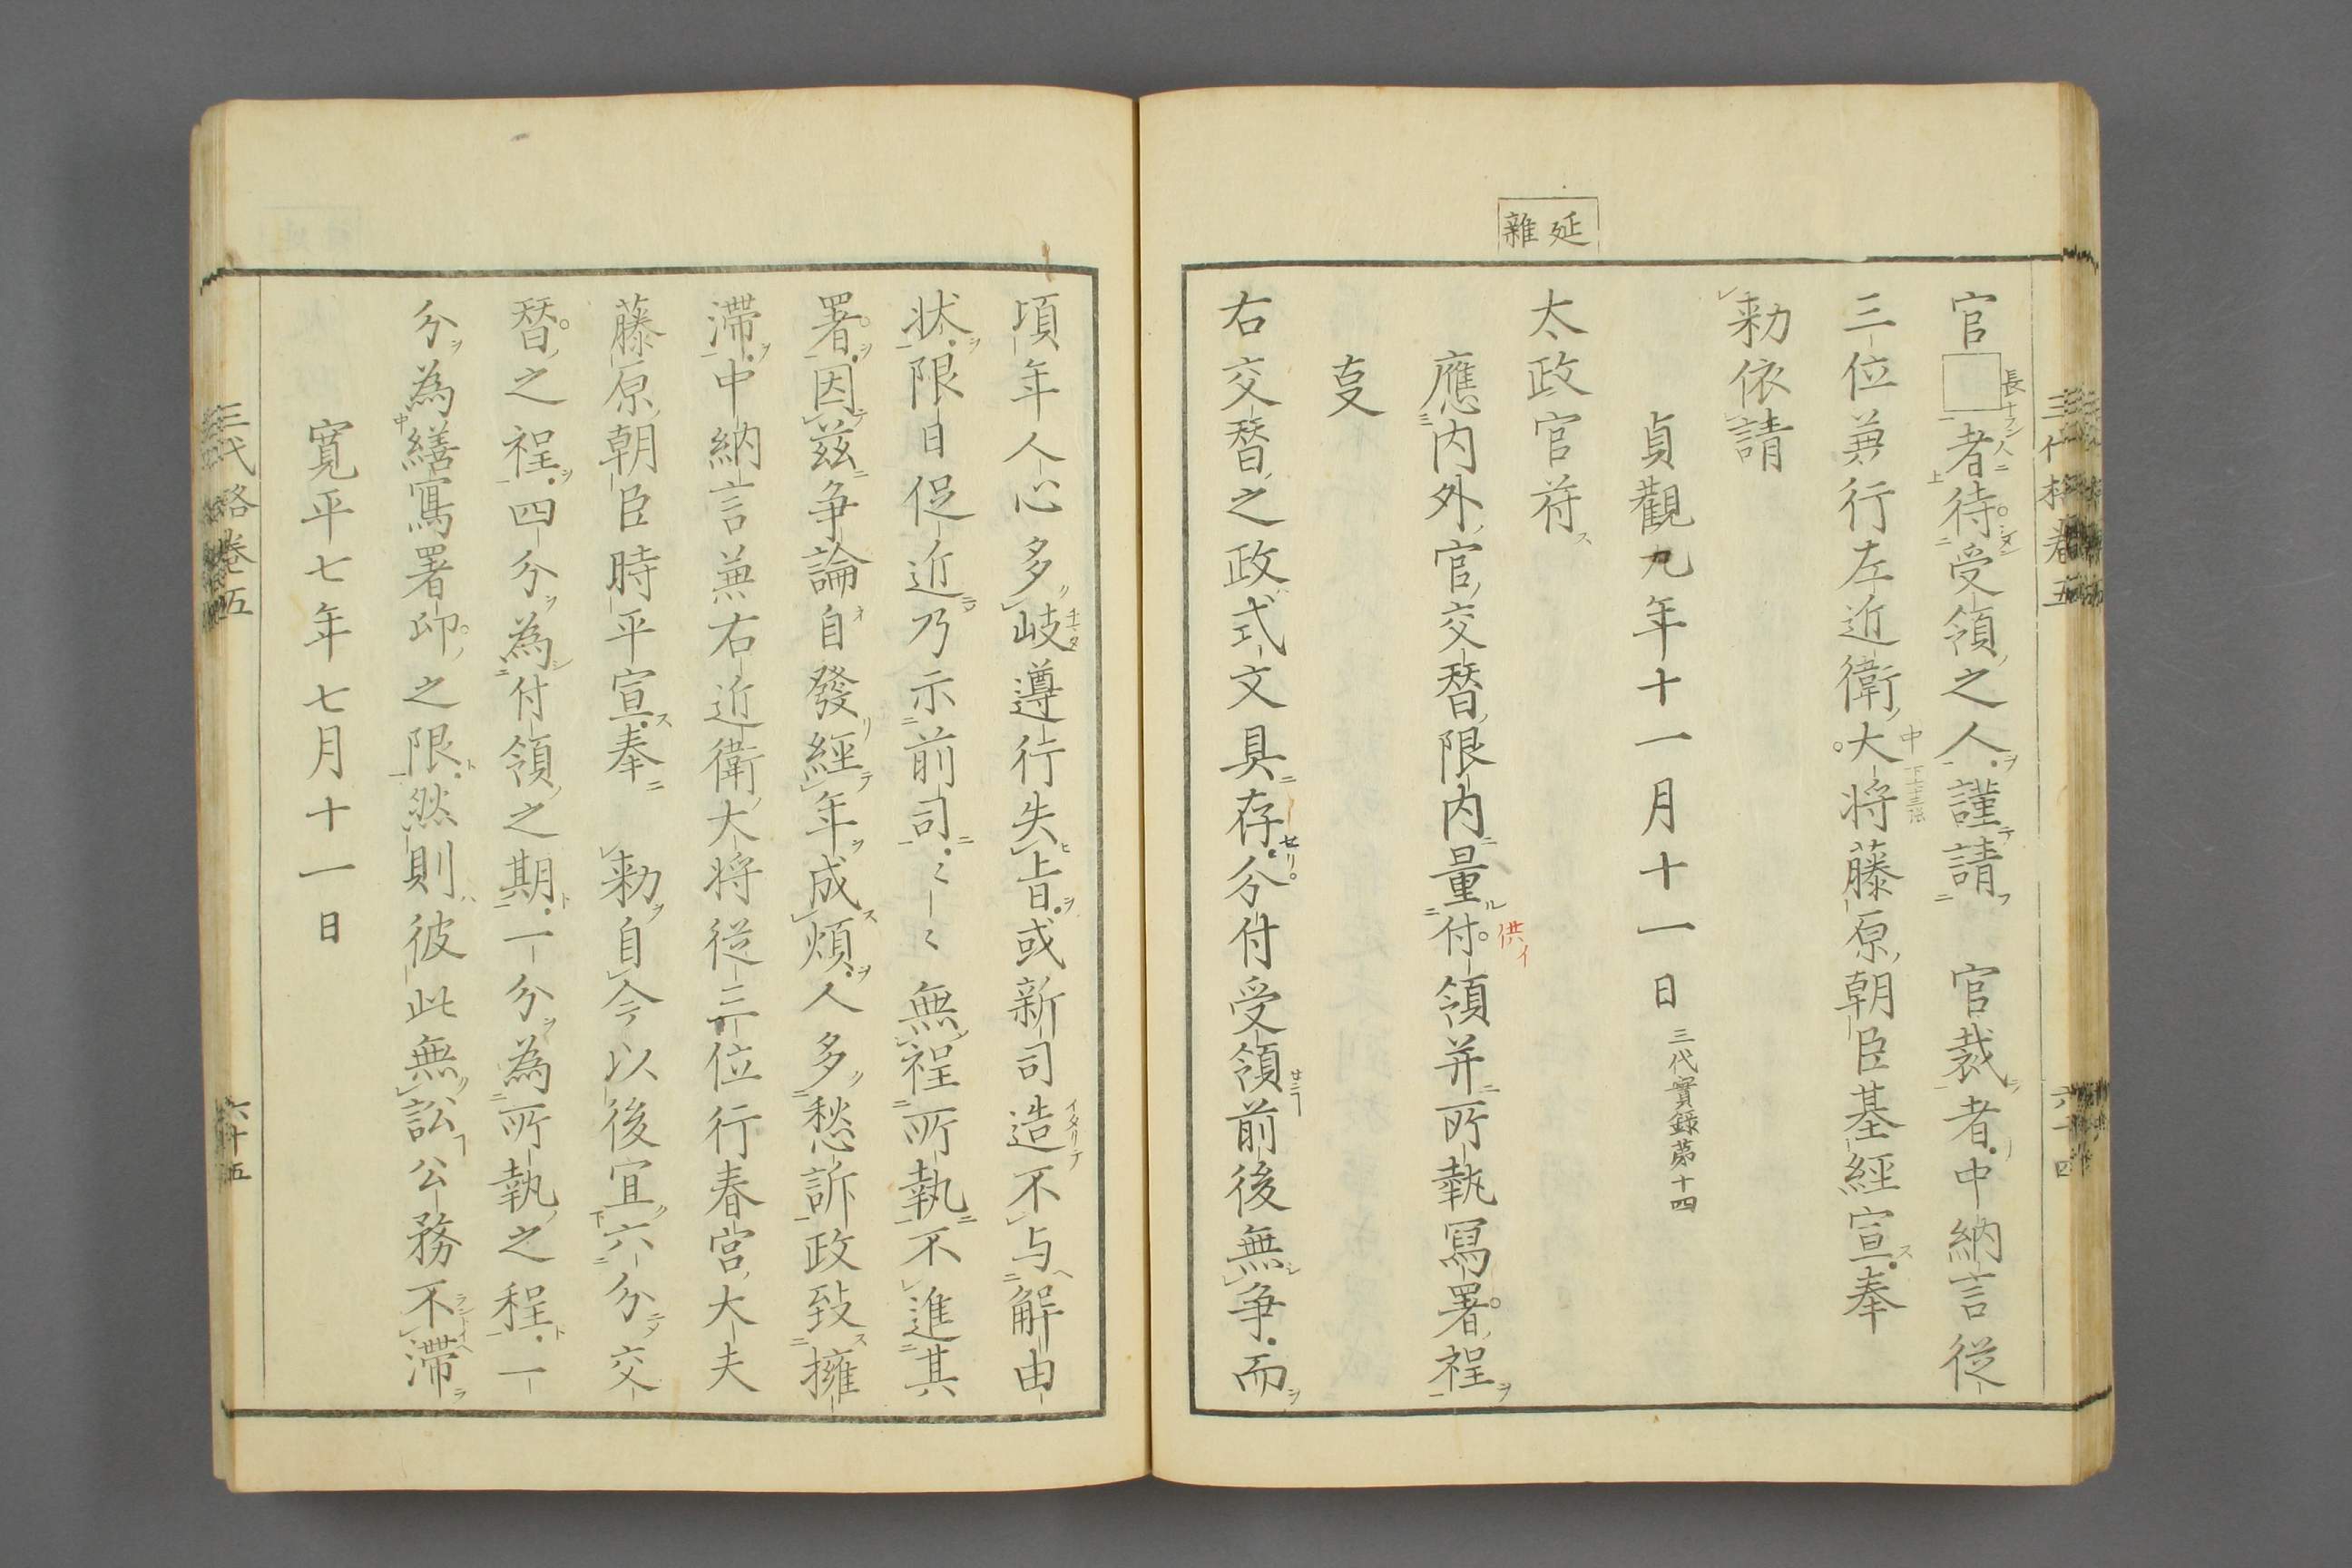 延雜
官□者待受領之人謹請　官裁者中納言從
三位兼行左近衛大将藤原朝臣基經宣奉
勅依請
貞觀九年十一月十一日 三代實錄第十四
太政官符
應内外官交替限内量付領并所執冩署程
㕝
右交替之政式文具存分付受領前後無争而
項年人心多岐遵行失旨或新司造不与解由
状限日促近乃示前司〻〻無程所執不進其
署因兹争論自發經年成煩人多愁訴政致擁
滞中納言兼右近衛大将從三位行春宮大夫
藤原朝臣時平宣奉　勅自今以後宜六分交
替之程四分為付領之期一分為所執之程一
分為繕寫署印之限然則彼此無訟公務不滞
寛平七年七月十一日
三代格卷五
六十五